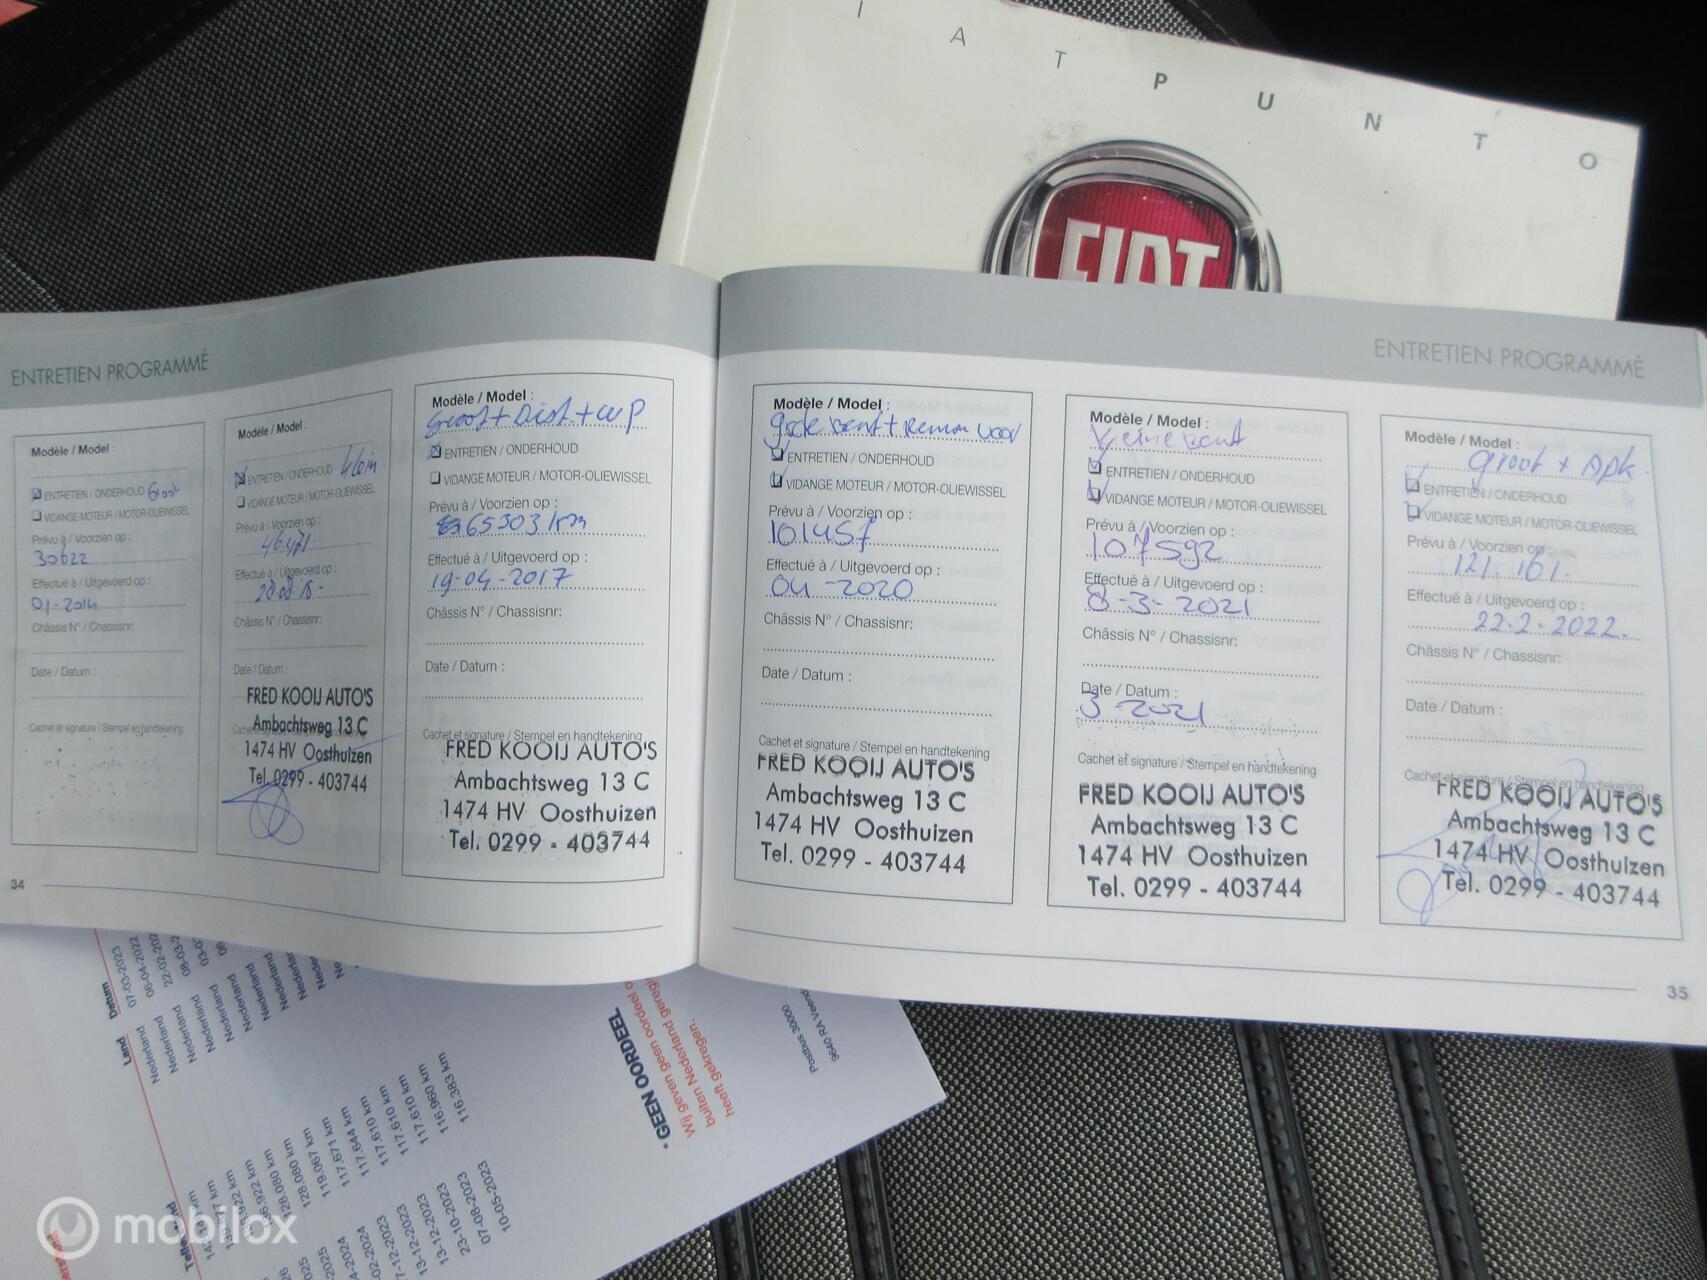 I A T P U N T O
FIAT
ENTRETIEN PROGRAMMÉ
Modèle / Model :
ENTRETIEN / ONDERHOUD Groot
VIDANGE MOTEUR / MOTOR-OLIEWISSEL
Prévu à / Voorzien op :
30622
Effectué à / Uitgevoerd op :
01-2014
Châssis N° / Chassisnr:
Date / Datum :
Cachet et signature / Stempel en handtekening
Modèle / Model :
ENTRETIEN / ONDERHOUD klein
VIDANGE MOTEUR / MOTOR-OLIEWISSEL
Prévu à / Voorzien op :
46.471.
Effectué à / Uitgevoerd op :
Châssis N° / Chassisnr:
Date / Datum :
FRED KOOIJ AUTO'S
Ambachtsweg 13 C
1474 HV Oosthuizen
Tel. 0299 - 403744
Modèle / Model :
Groot + Dist. +
ENTRETIEN / ONDERHOUD
VIDANGE MOTEUR / MOTOR-OLIEWISSEL
Prévu à / Voorzien op :
65303 km
Effectué à / Uitgevoerd op :
19-04-2017
Châssis N° / Chassisnr:
Date / Datum :
Cachet et signature / Stempel en handtekening
FRED KOOIJ AUTO'S
Ambachtsweg 13 C
1474 HV Oosthuizen
Tel. 0299 - 403744
34
ENTRETIEN PROGRAMMÉ
Modèle / Model :
+ Remmen voor
ENTRETIEN / ONDERHOUD
VIDANGE MOTEUR / MOTOR-OLIEWISSEL
Prévu à / Voorzien op :
101457
Effectué à / Uitgevoerd op :
04-2020
Châssis N° / Chassisnr:
Date / Datum :
Cachet et signature / Stempel en handtekening
FRED KOOIJ AUTO'S
Ambachtsweg 13 C
1474 HV Oosthuizen
Tel. 0299 - 403744
Modèle / Model :
Kleine beurt
ENTRETIEN / ONDERHOUD
VIDANGE MOTEUR / MOTOR-OLIEWISSEL
Prévu à / Voorzien op :
107592
Effectué à / Uitgevoerd op :
8-3-2021
Châssis N° / Chassisnr:
Date / Datum :
3 2021
Cachet et signature / Stempel en handtekening
FRED KOOIJ AUTO'S
Ambachtsweg 13 C
1474 HV Oosthuizen
Tel. 0299 - 403744
Modèle / Model :
groot + Apk.
ENTRETIEN / ONDERHOUD
VIDANGE MOTEUR / MOTOR-OLIEWISSEL
Prévu à / Voorzien op :
121.161.
Effectué à / Uitgevoerd op :
22.2.2022.
Châssis N° / Chassisnr:
Date / Datum :
Cachet et signature / Stempel en handtekening
FRED KOOIJ AUTO'S
Ambachtsweg 13 C
1474 HV Oosthuizen
Tel. 0299 - 403744
35
Datum
07-03-2023
06-04-2022
22-02-202
08-03-2
Land
Nederland
Nederland
Nederland
Nederland
Nederland
Nederland
Nederland
128.080 km
128.080 km
119.067 km
117.671 km
117.644 km
117.610 km
117.610 km
117.610 km
116.960 km
116.383 km
13-12-2023
13-12-2023
23-10-2023
07-08-2023
10-05-2023
* GEEN OORDEEL
Wij geven geen oordeel
buiten Nederland
heeft gekregen.
Postbus 30000
9640 RA Veend
mobilox